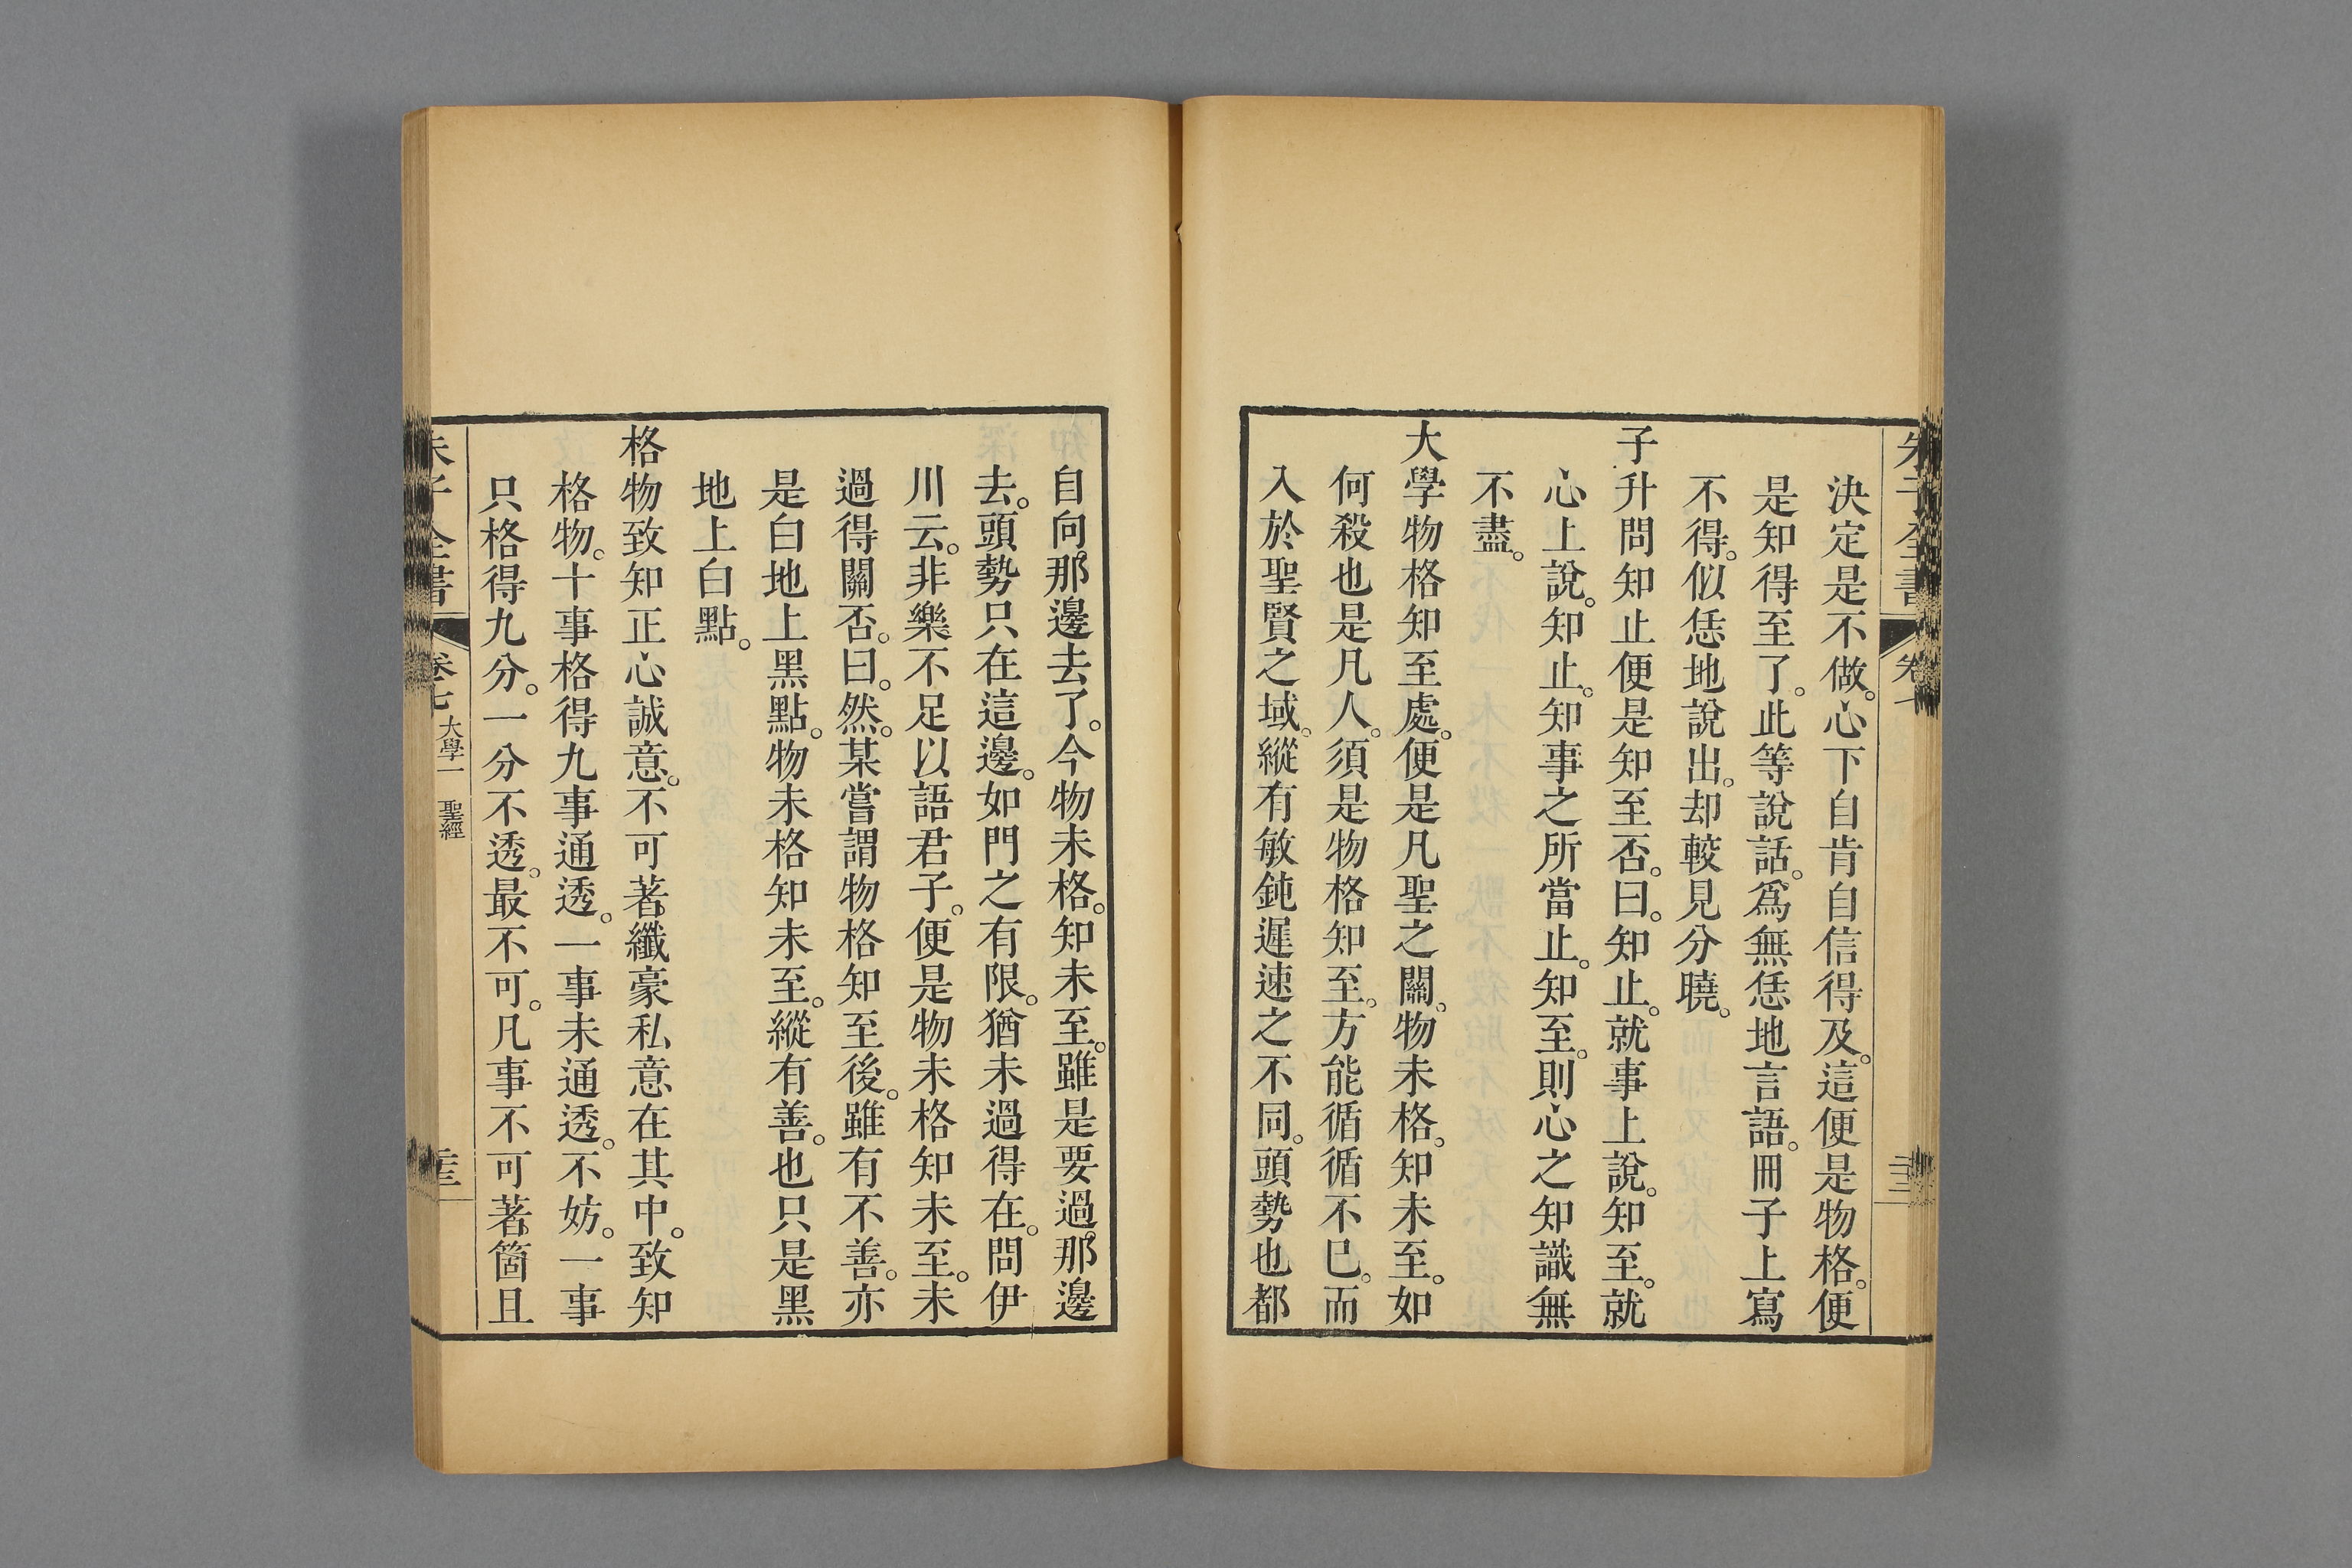 朱子全書 卷七
決定是不做。心下自肯自信得及。這便是物格。便
是知得至了。此等說話。爲無恁地言語。冊子上寫
不得。似恁地說出。却較見分曉。
子升問知止便是知至否。曰。知止。就事上說。知至。就
心上說。知止。知事之所當止。知至。則心之知識無
不盡。
大學物格知至處。便是凡聖之關。物未格。知未至。如
何殺也是凡人。須是物格知至。方能循循不已。而
入於聖賢之域。縱有敏鈍遲速之不同。頭勢也都
自向那邊去了。今物未格。知未至。雖是要過那邊
去。頭勢只在這邊。如門之有限。猶未過得在。問伊
川云。非樂不足以語君子。便是物未格知未至。未
過得關否。曰。然。某嘗謂物格知至後。雖有不善。亦
是白地上黑點。物未格知未至。縱有善。也只是黑
地上白點。
格物致知正心誠意。不可著纖豪私意在其中。致知
格物。十事格得九事通透。一事未通透。不妨。一事
只格得九分。一分不透。最不可。凡事不可著箇且
朱子全書 卷七 大學一 聖經